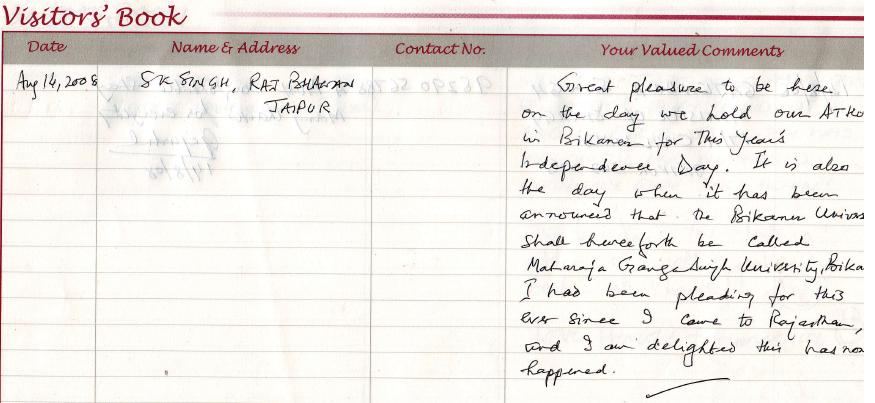 Visitors' Book
Date Name & Address Contact No. Your Valued Comments
Aug 14, 2008 SK SINGH, RAJ BHAWAN Great pleasure to be here
JAIPUR on the day we hold our ATHO
in Bikaner for This Year's
Independence Day. It is also
the day when it has been
announced that the Bikaner Univers
shall henceforth be called
Maharaja Ganga Singh University, Bika
I had been pleading for this
ever since I came to Rajasthan,
and I am delighted this has now
happened.